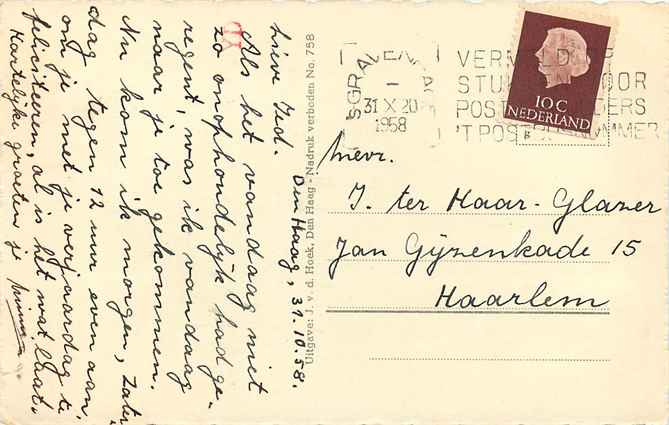 Den Haag, 31.10.58.
Lieve Ied.
Als het vandaag niet
zo onophoudelijk had ge-
regent, was ik vandaag
naar je toe gekommen.
Nu kom ik morgen, Zater
dag tegen 12 uur even aan,
om je met je verjaardag te
feliciteeren, al is het wat laat.
Hartelijke groeten je
Uitgave: J. v. d. Hoek, Den Haag - Nadruk verboden No. 758
31 X 20
1958
10 C
NEDERLAND
Mevr.
J. ter Haar-Glazer
Jan Gijzenkade 15
Haarlem